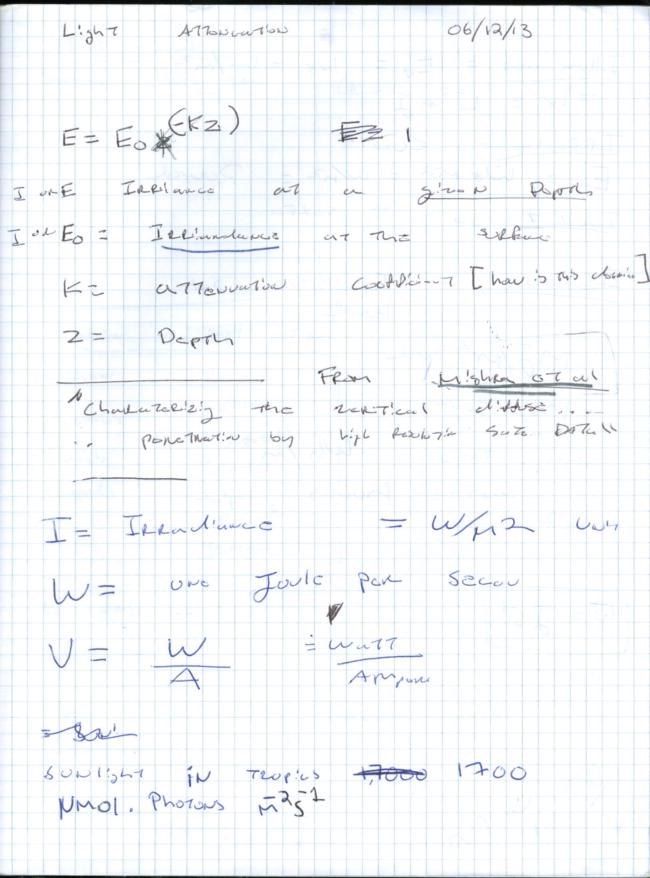 Light Attenuation 06/12/13
E = E0 (-Kz)
1
I or E Irrliance at a given Depth
I or E0 = Irriandance at the surface
K = attenuation Coefficient [how is this
Z = Depth
From Mishra et al
"Characterizing the vertical diffuse ....
.. penetration by high Resolution Sate Data"
I = Irradiance = W/M2 Unit
W = one Joule per Secon
V = W/A = Watt/Ampere
Sunlight in Tropics 1700
µmol. Photons m-2s-1